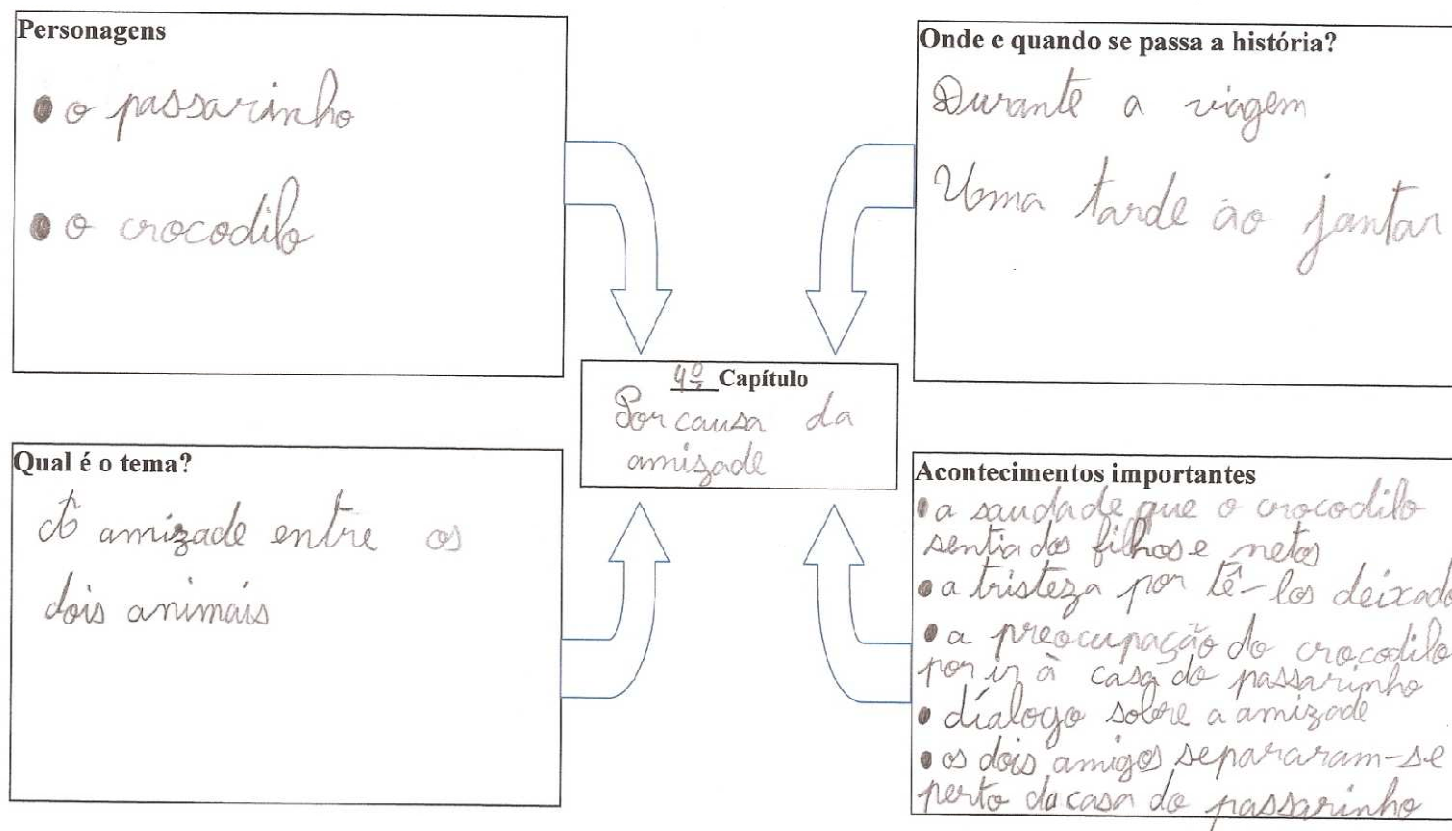 Personagens
• o passarinho
• o crocodilo
Onde e quando se passa a história?
Durante a viagem
Uma tarde ao jantar
4º Capítulo
Por causa da
amizade
Qual é o tema?
A amizade entre os
dois animais
Acontecimentos importantes
• a saudade que o crocodilo
sentia dos filhos e netos
• a tristeza por tê-los deixado
• a preocupação do crocodilo
por ir à casa do passarinho
• díalogo sobre a amizade
• os dois amigos separaram-se
perto da casa do passarinho